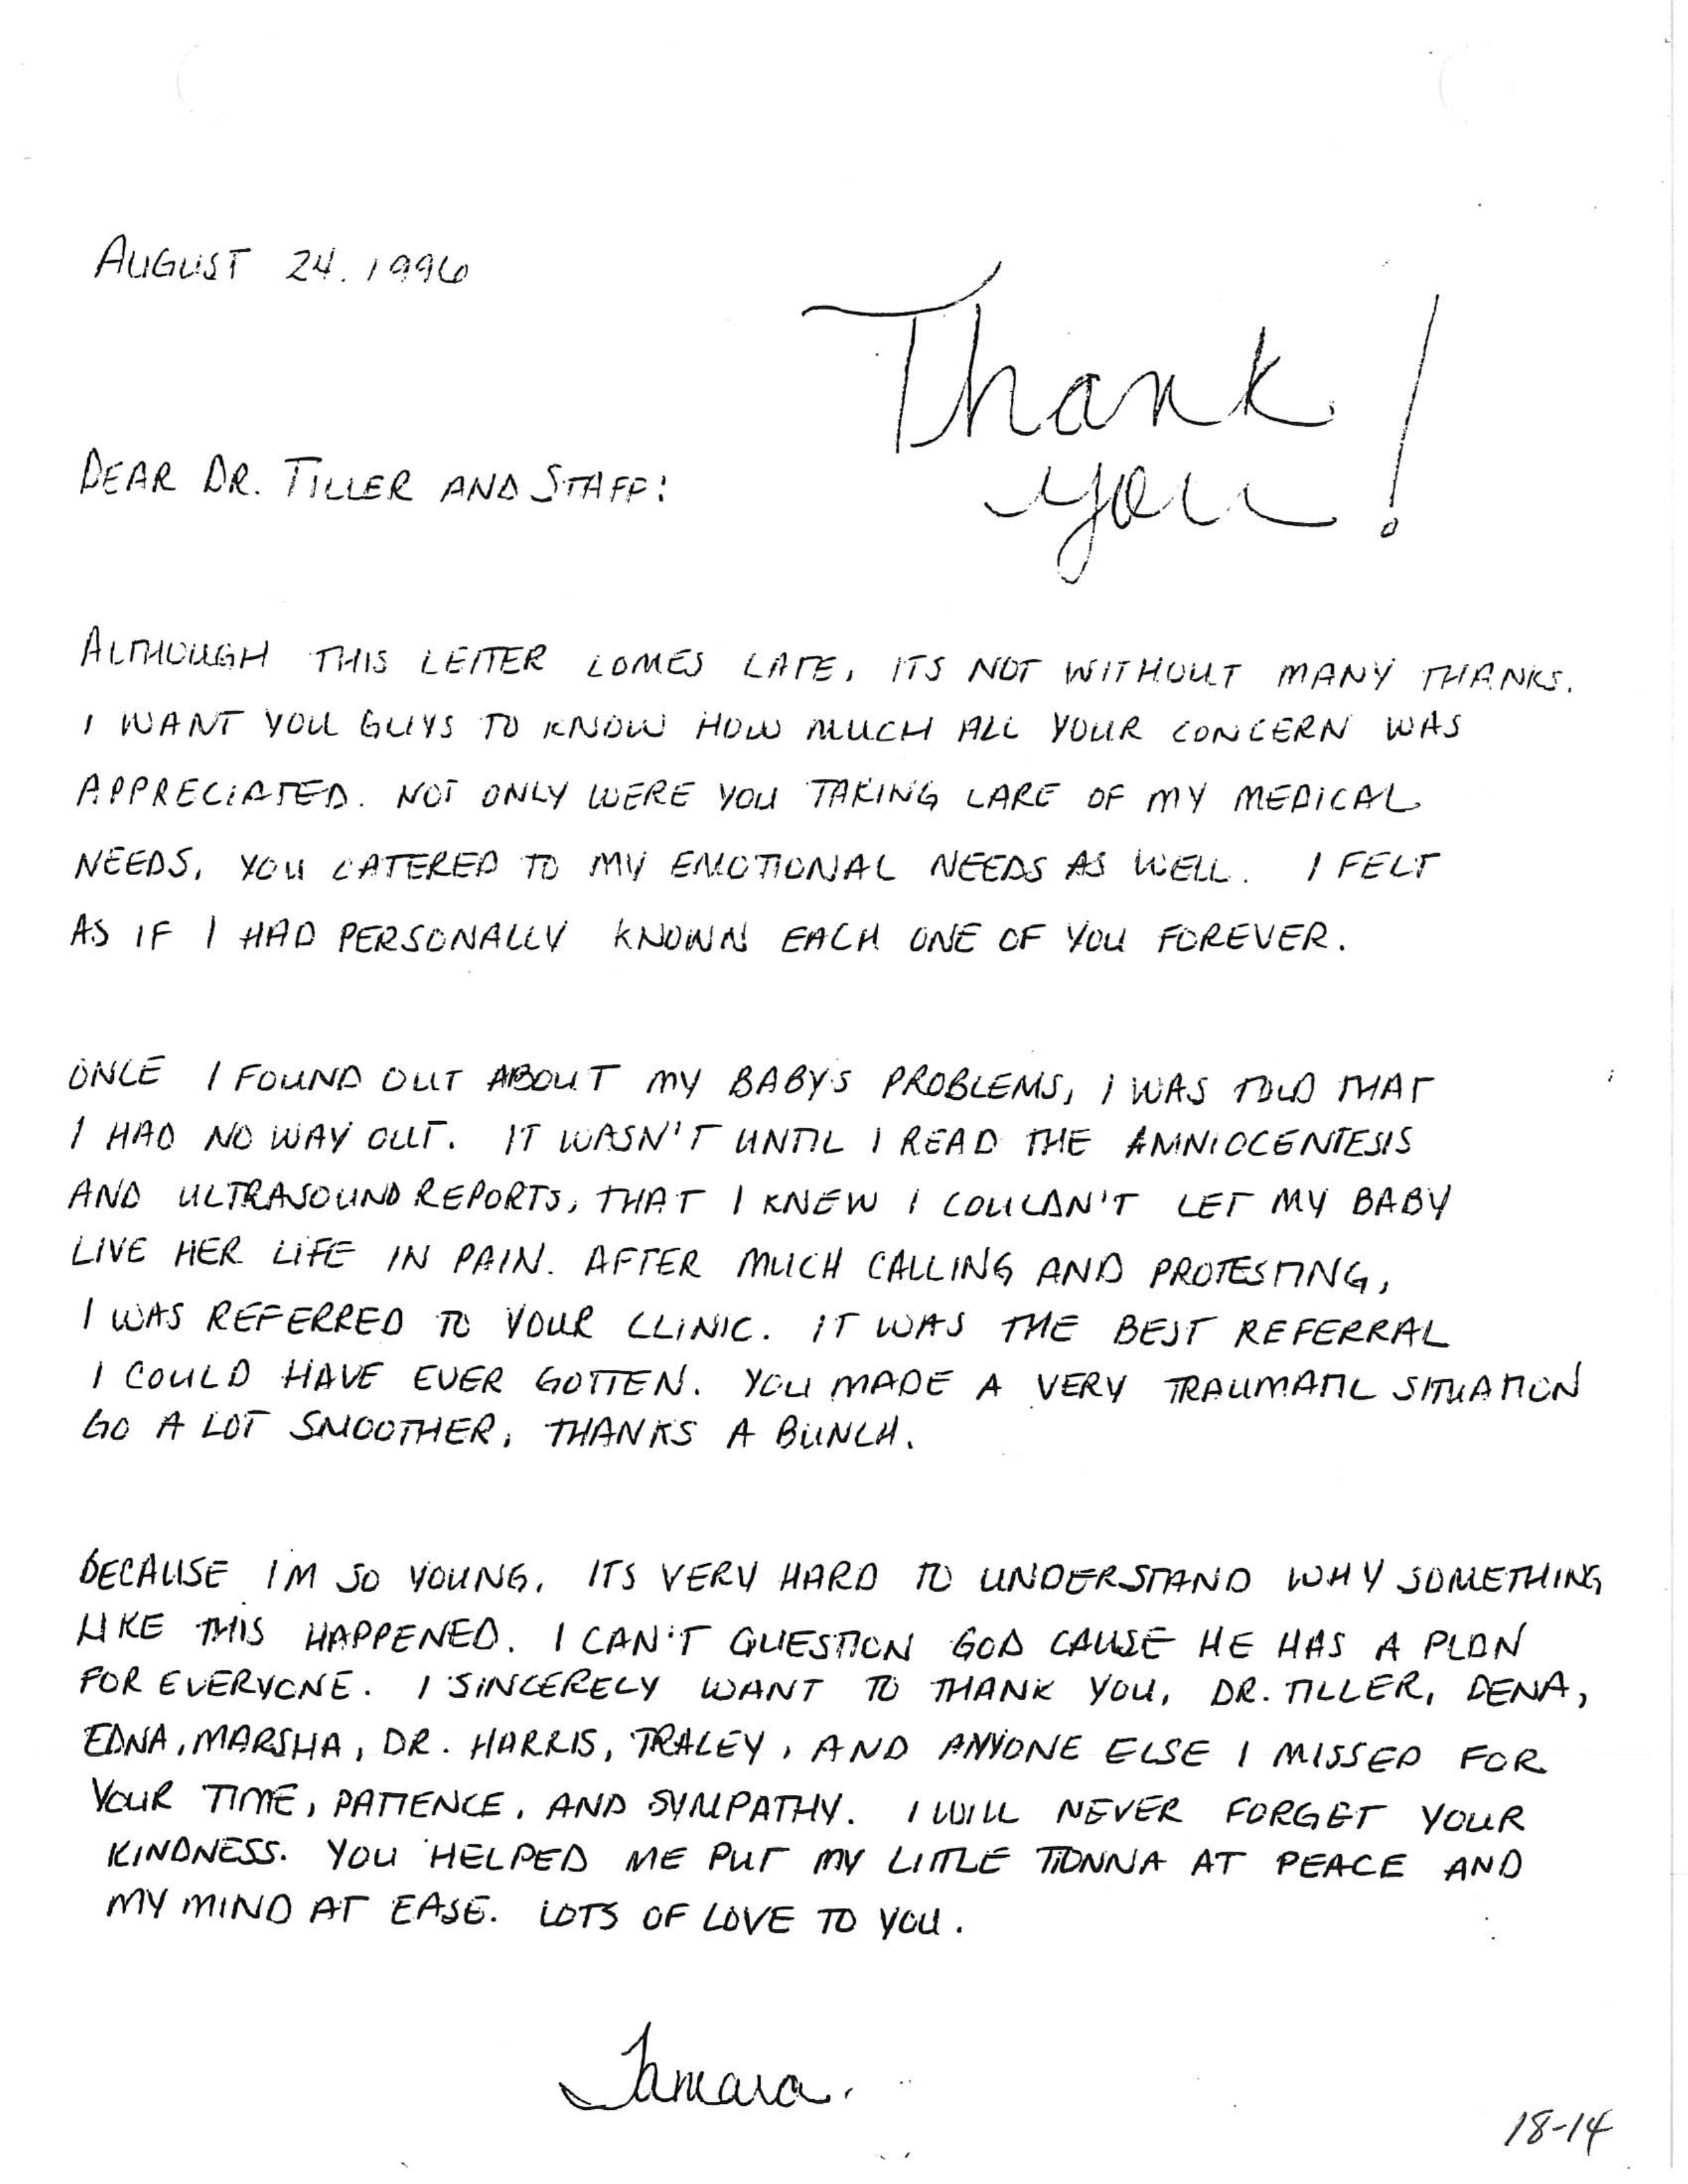 AUGUST 24. 1996
Thank
you!
DEAR DR. TILLER AND STAFF:
ALTHOUGH THIS LETTER COMES LATE, ITS NOT WITHOUT MANY THANKS.
I WANT YOU GUYS TO KNOW HOW MUCH ALL YOUR CONCERN WAS
APPRECIATED. NOT ONLY WERE YOU TAKING CARE OF MY MEDICAL
NEEDS, YOU CATERED TO MY EMOTIONAL NEEDS AS WELL. I FELT
AS IF I HAD PERSONALLY KNOWN EACH ONE OF YOU FOREVER.
ONCE I FOUND OUT ABOUT MY BABY'S PROBLEMS, I WAS TOLD THAT
I HAD NO WAY OUT. IT WASN'T UNTIL I READ THE AMNIOCENTESIS
AND ULTRASOUND REPORTS, THAT I KNEW I COULDN'T LET MY BABY
LIVE HER LIFE IN PAIN. AFTER MUCH CALLING AND PROTESTING,
I WAS REFERRED TO YOUR CLINIC. IT WAS THE BEST REFERRAL
I COULD HAVE EVER GOTTEN. YOU MADE A VERY TRAUMATIC SITUATION
GO A LOT SMOOTHER, THANKS A BUNCH.
BECAUSE I'M SO YOUNG, ITS VERY HARD TO UNDERSTAND WHY SOMETHING
LIKE THIS HAPPENED. I CAN'T QUESTION GOD CAUSE HE HAS A PLAN
FOR EVERYONE. I SINCERELY WANT TO THANK YOU, DR. TILLER, DENA,
EDNA, MARSHA, DR. HARRIS, TRACEY, AND ANYONE ELSE I MISSED FOR
YOUR TIME, PATIENCE, AND SYMPATHY. I WILL NEVER FORGET YOUR
KINDNESS. YOU HELPED ME PUT MY LITTLE TIONNA AT PEACE AND
MY MIND AT EASE. LOTS OF LOVE TO YOU.
Tamara.
18-14